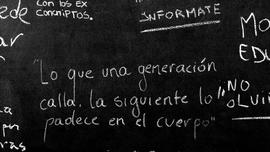 ede
con los ex
conscriptos.
INFORMATE
MO
EDU
ar
"Lo que una generación
calla, la siguiente lo
padece en el cuerpo"
"NO
OLVI
a
por
ras